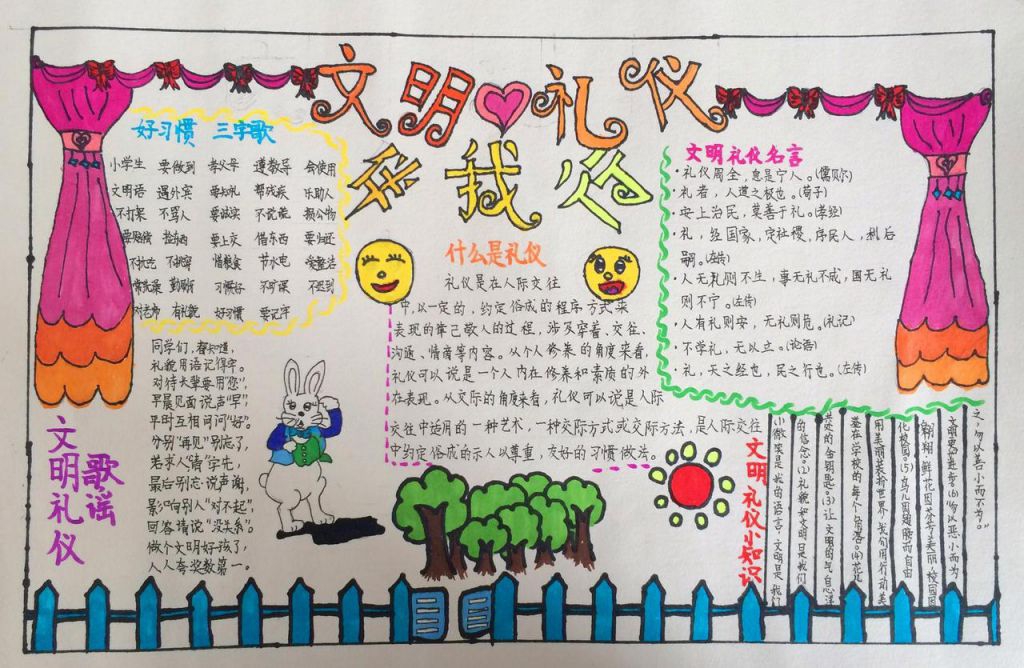 文明礼仪
我行
好习惯 三字歌
小学生 要做到 孝父母 遵教导 会使用
文明语 遇外宾 要知礼 帮残疾 乐助人
不打架 不骂人 要诚实 不说谎 损公物
要赔钱 捡东西 要上交 借东西 要归还
不挑吃 不挑穿 惜粮食 节水电 爱整洁
常洗澡 勤 习惯好 不旷课 不迟到
有礼貌 好习惯 要记牢
文明礼仪名言
·礼仪周全,息是宁人。(儒贝尔)
·礼者,人道之极也。(荀子)
·安上治民,莫善于礼。(孝经)
·礼,经国家,定社稷,序民人,利后
嗣。(左传)
·人无礼则不生,事无礼不成,国无礼
则不宁。(左传)
·人有礼则安,无礼则危。(礼记)
·不学礼,无以立。(论语)
·礼,天之经也,民之行也。(左传)
什么是礼仪
礼仪是在人际交往
中,以一定的,约定俗成的程序方式来
表现的律己敬人的过程,涉及穿着、交往、
沟通、情商等内容。从个人修养的角度来看,
礼仪可以说是一个人内在修养和素质的外
在表现。从交际的角度来看,礼仪可以说是人际
交往中适用的一种艺术,一种交际方式或交际方法,是人际交往
中约定俗成的示人以尊重,友好的习惯做法。
文明礼仪
歌谣
同学们,都知道,
礼貌用语记得牢。
对待长辈要用“您”,
早晨见面说声“早”,
平时互相问问“好”。
分别“再见”别忘了,
若求人“请”字先,
最后别忘说声谢,
影响别人“对不起”,
回答请说“没关系”。
做个文明好孩子,
人人夸奖数第一。
文明礼仪小知识
小微笑是我的语言,文明是我们
的信念。(2)礼貌和文明是我们
共处的金钥匙。(3)让文明的气息洋
溢在学校的每个角落。(4)花儿
用美丽装扮世界,我们用行动美
化校园。(5)鸟儿因翅膀而自由
翱翔,鲜花因芬芳美丽,校园因
文明更加进步。(6)勿以恶小而为
之,勿以善小而不为。”